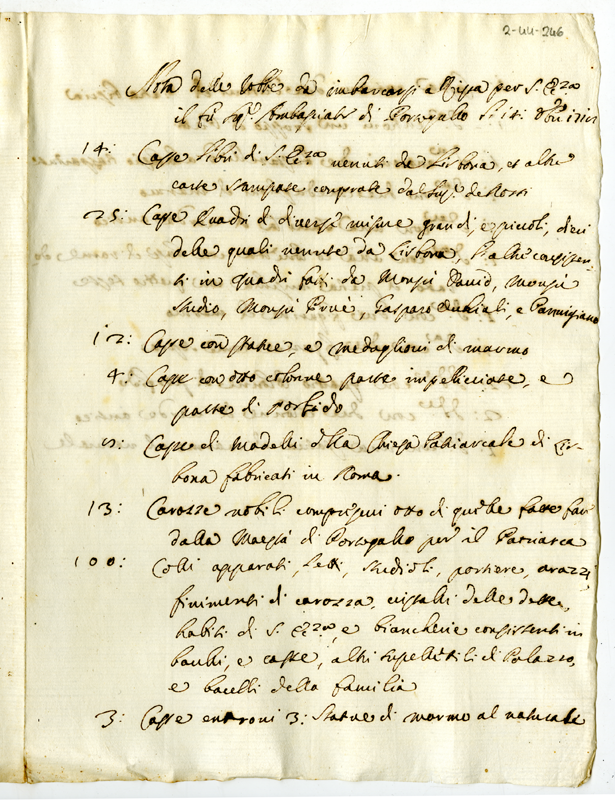 2-44-246
Nota delle robbe da imbarcarsi a Ripa per S. Ecc.za
il fu Sig.r Ambasciat.r di Portogallo li 14: 8bre
14: Casse libri di S. Ecc.za venuti da Lisbona, et altre
carte stampate comprate dal Sig.r de Rossi
25: Casse Quadri di diverse misure grandi, e piccoli, dieci
delle quali venute da Lisbona, l'altre consisten-
ti in quadri fatti da Monsù David, Monsù
Studio, Monsù Gasparo Ochiali, e Parmigiano
12: Casse con statue, e medaglioni di marmo
4: Casse con otto colonne parte impelliciate, e
parte di Porfido
Casse di Modelli della Chiesa Patriarcale di Lis-
bona fabricati in Roma.
13: Carozze nobili compresevi otto di quelle fatte fare
dalla Maestà di Portogallo per il Patriarca
100: Colli apparati, letti, studioli, portiere, arazzi,
finimenti di carozza, cristalli delle dette,
habiti di S. Ecc.za, e biancherie consistenti in
bauli, e casse, altri supellettili di Palazzo,
e baulli della familia
3: Casse entroni 3: Statue di marmo al naturale